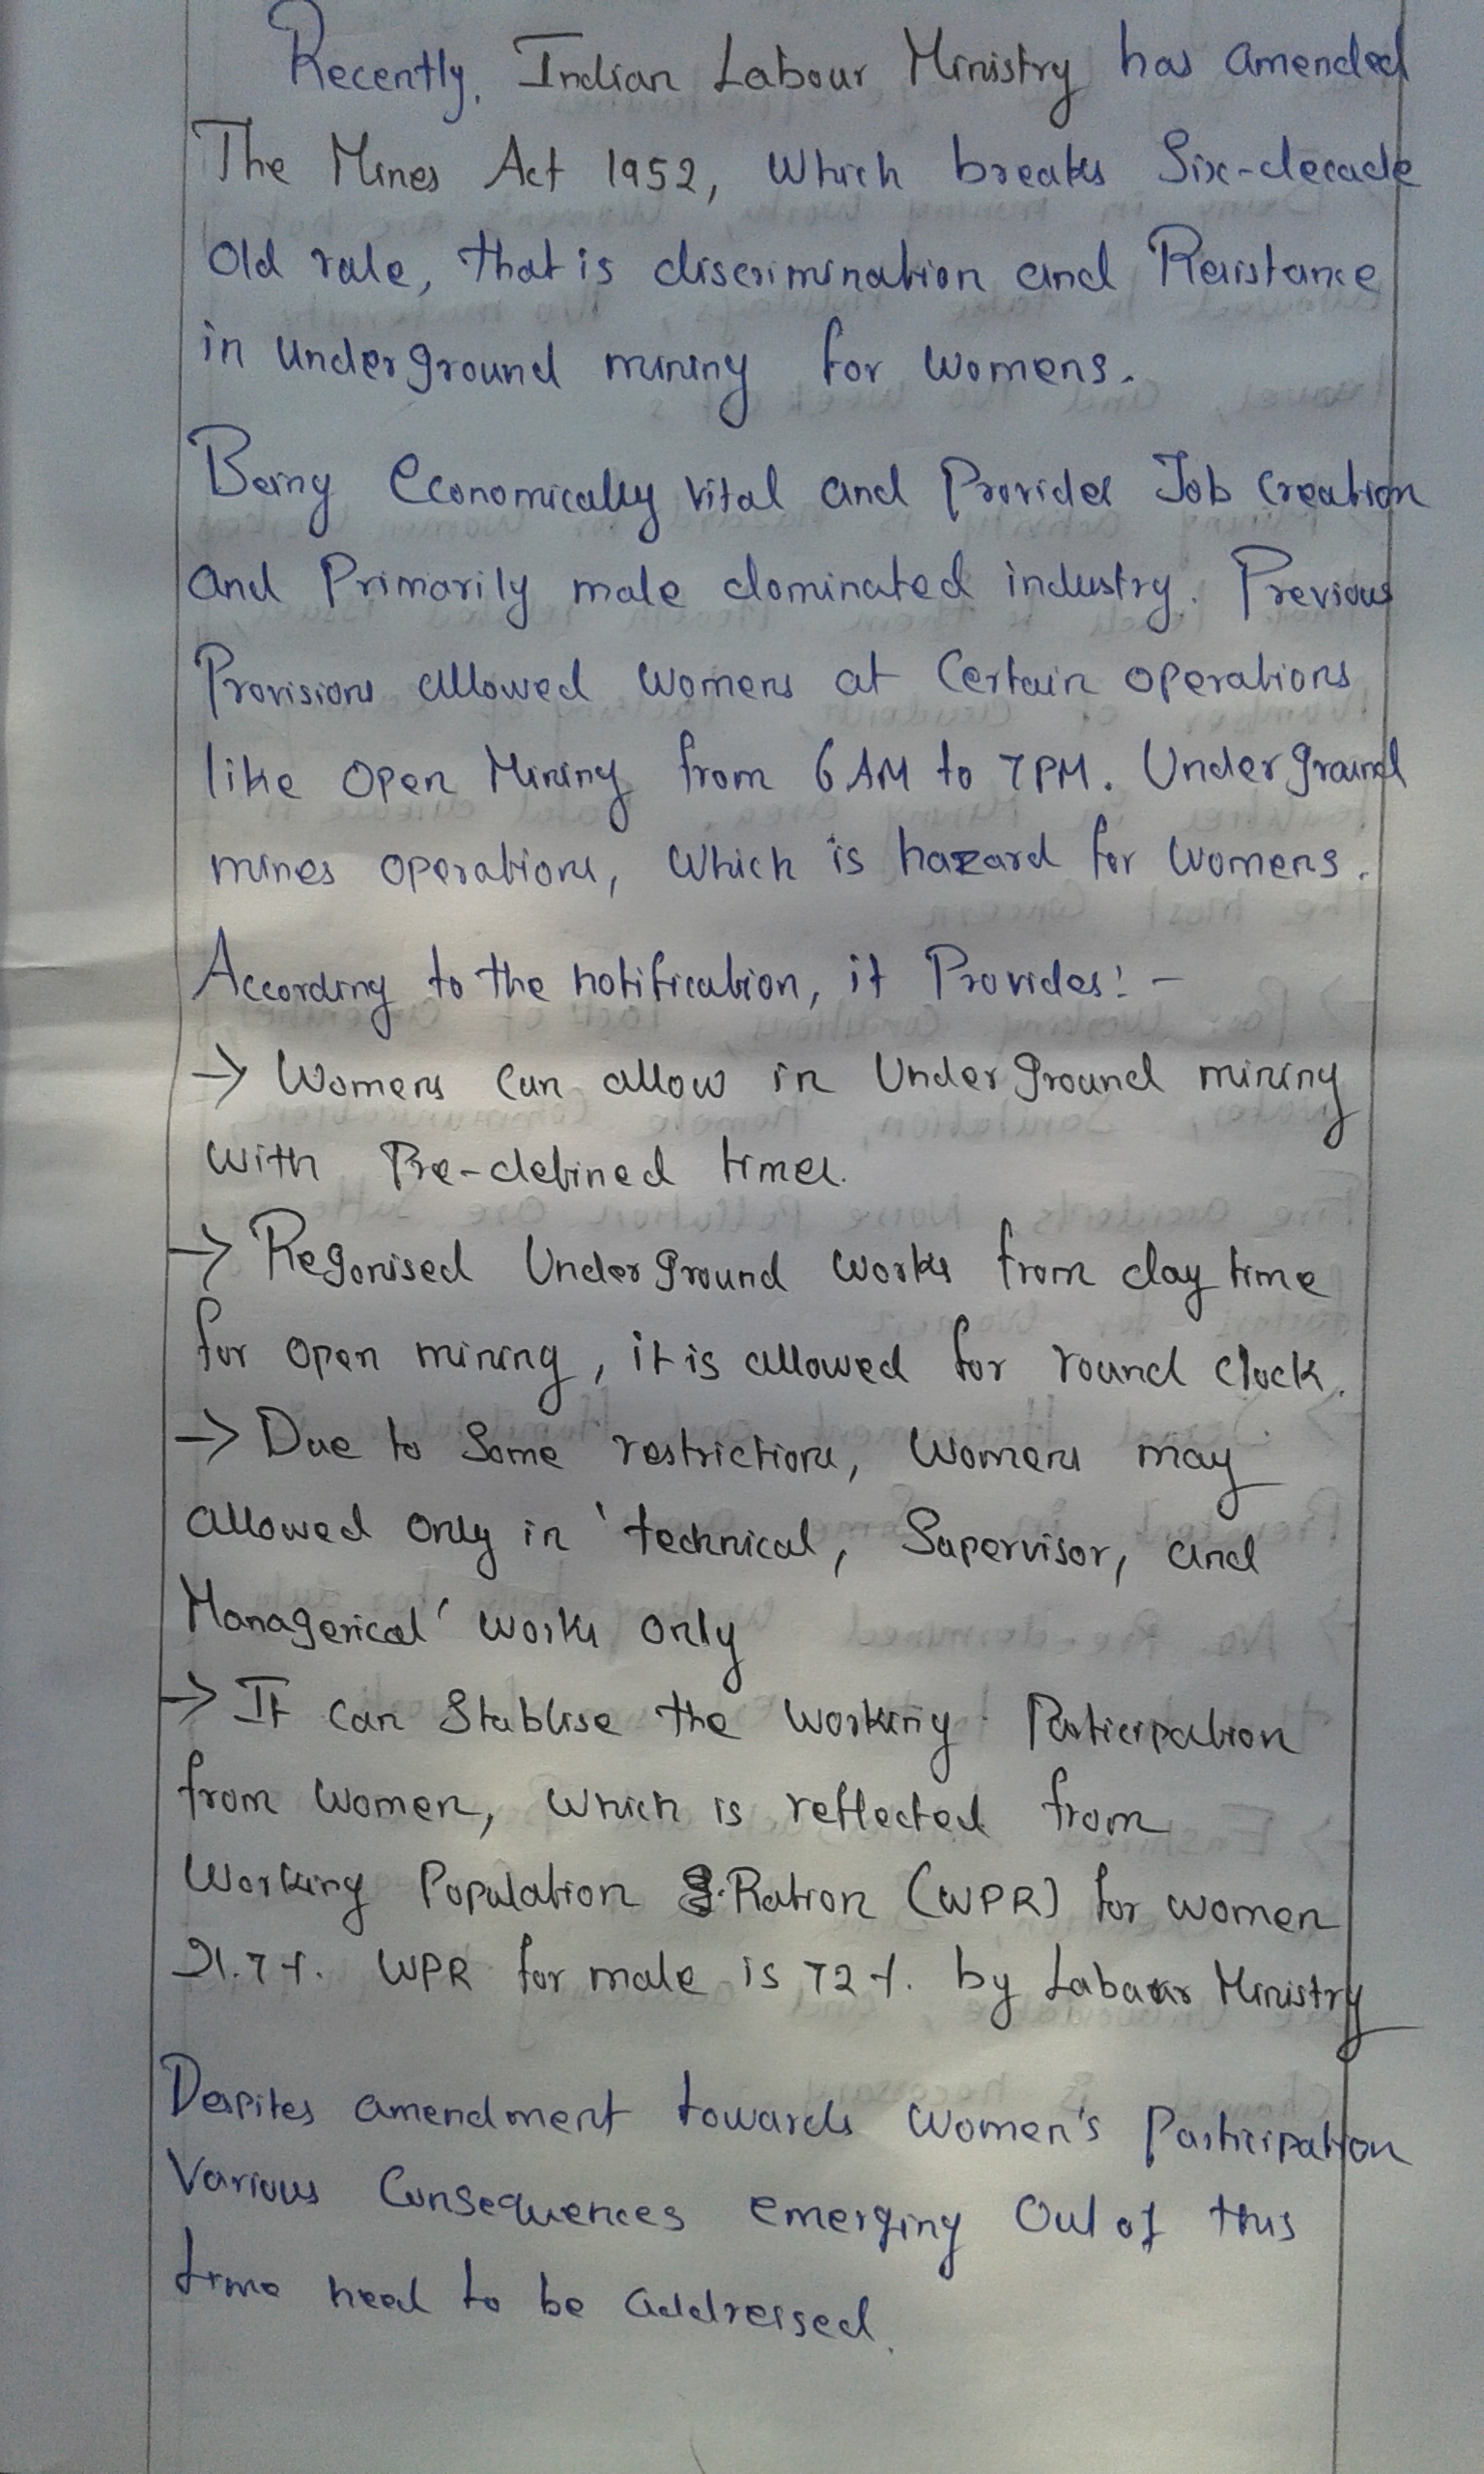 Recently, Indian Labour Ministry has amended
The Mines Act 1952, Which breaks Six-decade
Old rule, that is discrimination and Resistance
in underground mining for womens.
Being Economically vital and Provides Job Creation
and Primarily male dominated industry. Previous
Provisions allowed womens at Certain operations
like Open Mining from 6 AM to 7PM. Underground
mines operations, Which is hazard for womens.
According to the notification, it Provides:-
→ Womens can allow in Underground mining
with Pre-defined times.
→ Regonised Underground works from day time
for open mining, it is allowed for round clock.
→ Due to Some restrictions, womens may
allowed only in 'technical, Supervisor, and
Managerical' works only
→ It can Stablise the working Participation
from women, which is reflected from
Working Population Ration (WPR) for women
21.7%. WPR for male is 72%. by Labour Ministry
Despites amendment towards women's Participation
Various Consequences emerging Out of this
time need to be addressed.